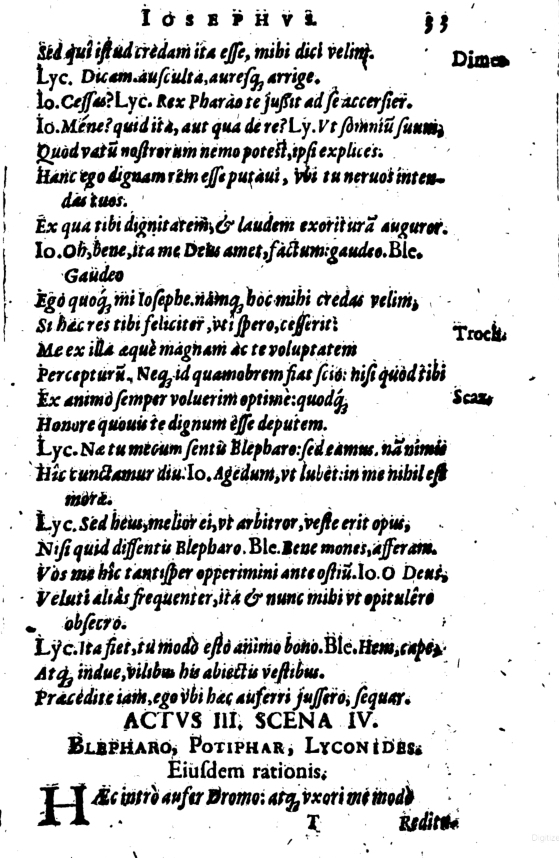 IOSEPHVS. 33
Sed quî iſtud credam ita eſſe, mihi dici velim.
Dimet.
Lyc. Dicam. auſculta, aureſq; arrige.
Io. Ceſſas? Lyc. Rex Pharao te juſsit ad ſe accerſier.
Io. Méne? quid ita, aut qua de re? Ly. Vt ſomniũ ſuum,
Quod vatũ noſtrorum nemo poteſt, ipſi explices.
Hanc ego dignam rem eſſe putavi, vbi tu neruos inten-
das tuos.
Ex qua tibi dignitatem, & laudem exoriturã auguror.
Io. Oh, bene, ita me Deus amet, factum: gaudeo. Ble.
Gaudeo
Ego quoq; mi Ioſephe. namq; hoc mihi credas velim,
Si hæc res tibi feliciter, vti ſpero, ceſſerit:
Troch.
Me ex illa æquè magnam ac te voluptatem
Percepturũ. Neq; id quamobrem fiat ſcio: niſi quòd tibi
Ex animo ſemper voluerim optimè: quodq́;
Scaz.
Honore quouis te dignum eſſe deputem.
Lyc. Næ tu mecum ſentis Blepharo: ſed eamus. nã nimis
Hîc cunctamur diu. Io. Agedum, vt lubet: in me nihil eſt
moræ.
Lyc. Sed heus, melior ei, vt arbitror, veſte erit opus,
Niſi quid diſſentis Blepharo. Ble. Bene mones, afferam.
Vos me hîc tantiſper opperimini ante oſtiũ. Io. O Deus,
Veluti aliàs frequenter, ità & nunc mihi vt opitulêre
obſecro.
Lyc. Ita fiet, tu modò eſto animo bono. Ble. Hem, cape,
Atq; indue, vilibus his abiectis veſtibus.
Præcedite iam, ego vbi hæc auferri juſſero, ſequar.
ACTVS III. SCENA IV.
BLEPHARO, POTIPHAR, LYCONIDES.
Eiuſdem rationis.
HÆc intrò aufer Dromo: atq; vxori me modò
T Reditu-
Digitize